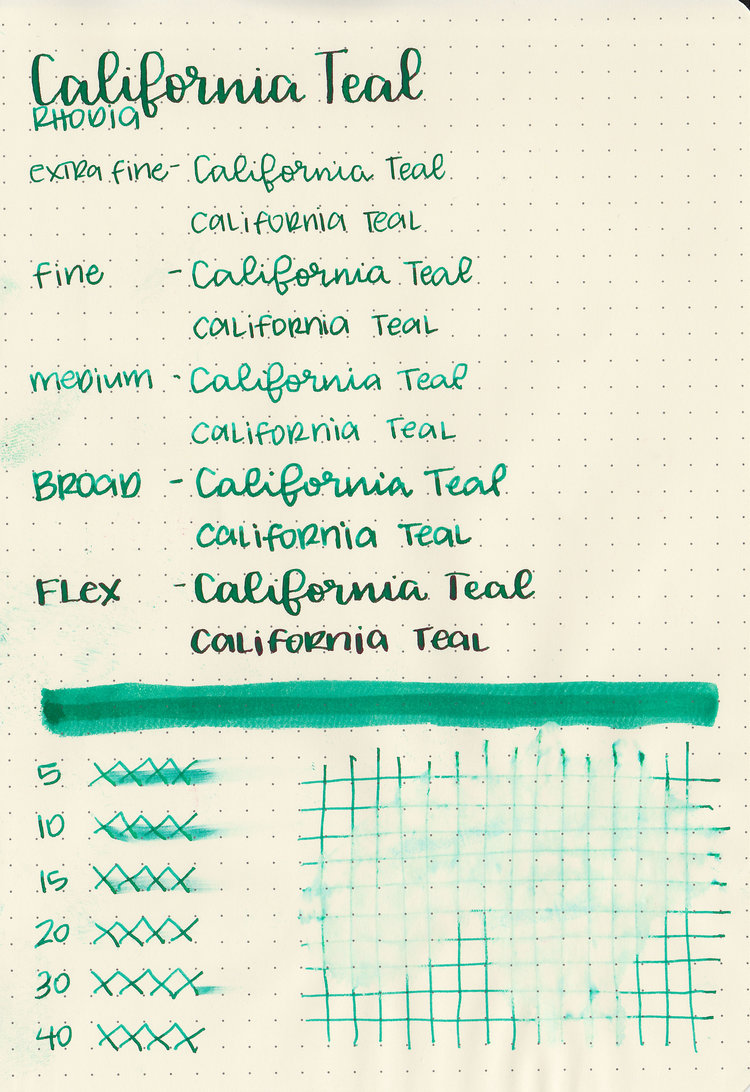 California Teal
RHODIA
extra fine - California Teal
CALIFORNIA TEAL
fine - California Teal
CALIFORNIA TEAL
medium - California Teal
CALIFORNIA TEAL
BROAD - California Teal
CALIFORNIA TEAL
FLEX - California Teal
CALIFORNIA TEAL
5 XXXX
10 XXXX
15 XXXX
20 XXXX
30 XXXX
40 XXXX